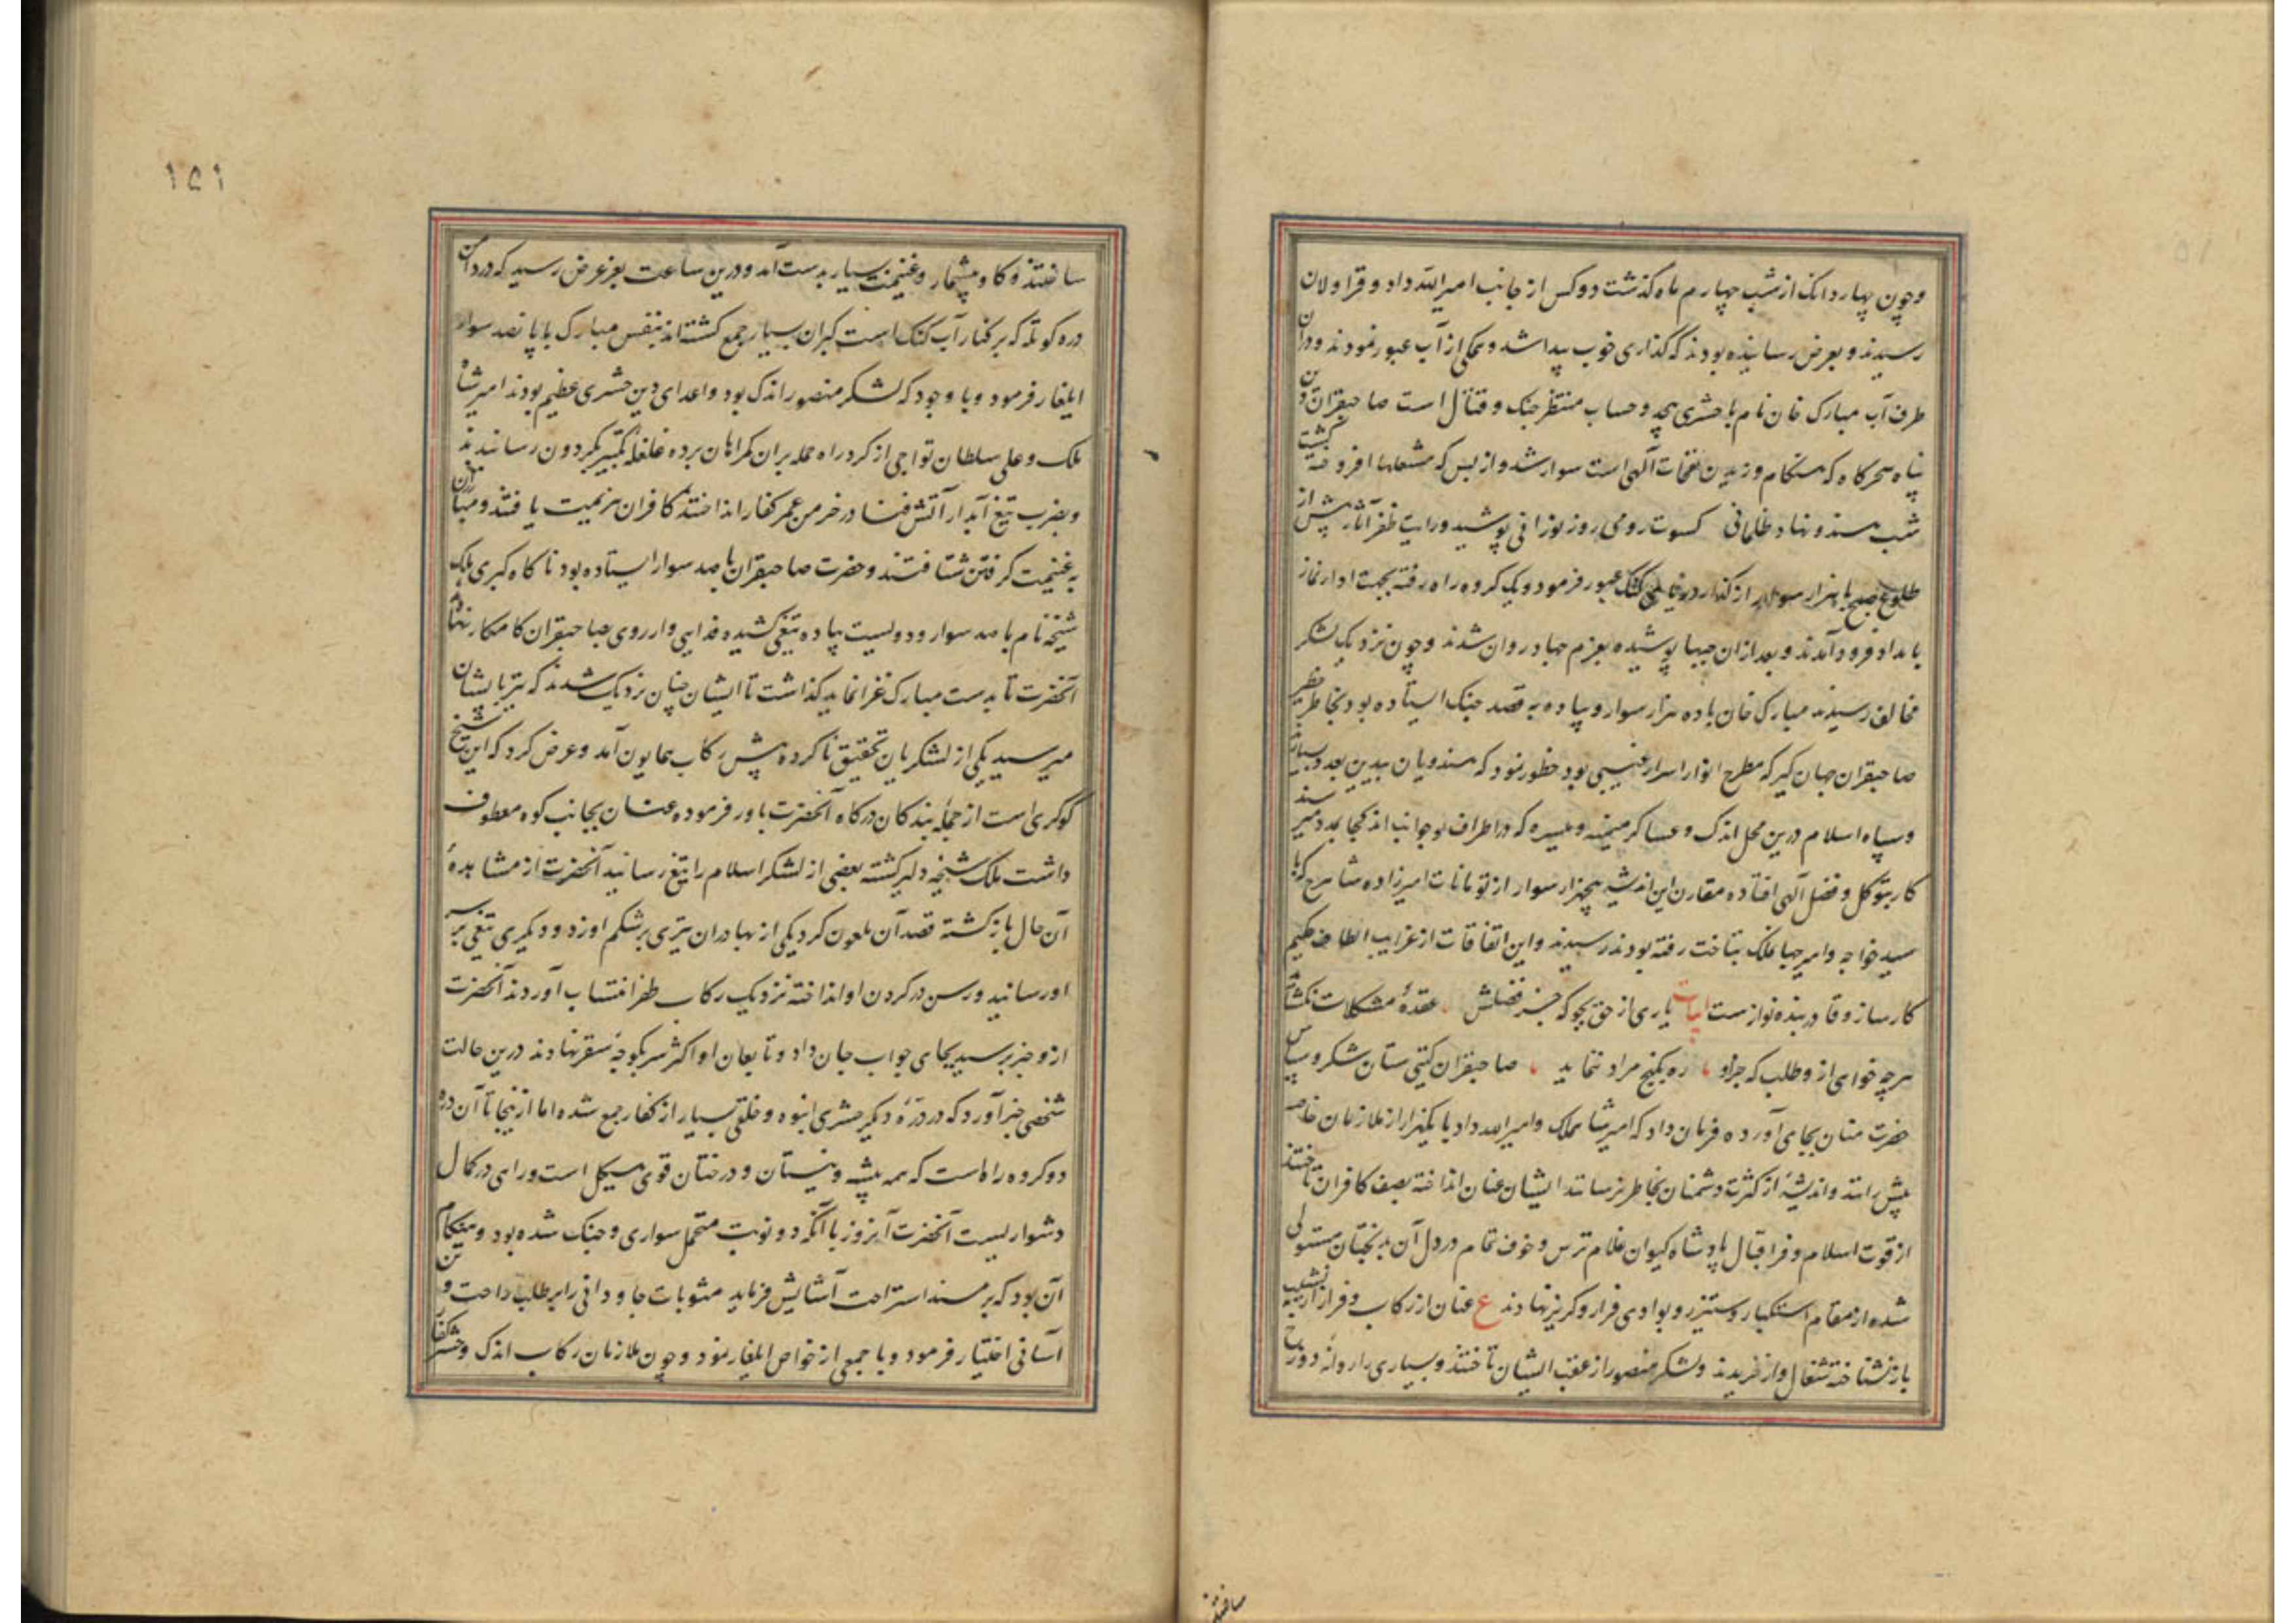 وچون چهار دانک از شب چهارم ماه کذشت دو کس از جانب امیر الله داد و قراولان
رسیدند و بعرض رسانیده بودند که کذاری خوب پیدا شد و همکی از آب عبور نمودند و دران
طرف آب مبارک خان نام با حشری بیحد و حساب منتظر جنک و قتال است صاحبقران دین
پناه سحرکاه که هنکام وزیدن نفحات آلهی است سوار شد و از بس که مشعلها افروخته کشت
شب هندو نهاد ظلمانی کسوت رومی روز نورانی پوشید ورایت ظفر آثار پیش از
طلوع صبح با هزار سوار از کذار دریای کنک عبور فرمود و یک کروه راه رفته بجهت ادار نماز
بامداد فرود آمدند و بعد ازان جیبها پوشیده بعزم جهاد روان شدند وچون نزدیک لشکر
مخالف رسیدند مبارک خان با ده هزار سوار و پیاده به قصد جنک ایستاده بود بخاطر خطیر
صاحبقران جهان کیر که مطرح انوار اسرار غیبی بود خطور نمود که هندویان بدین عدد بسیارند
وسپاه اسلام درین محل اندک و عساکر میمنه و میسره که در اطراف و جوانب اند کجا بمدد میرسند
کار بتوکل و فضل آلهی افتاده مقارن این اندیشه پنجهزار سوار از تومانات امیرزاده شاهرخ که با
سید خواجه و امیر جهانملک بتاخت رفته بودند رسیدند و این اتفاقات از غرایب الطاف حکیم
کارساز و قادر بنده نوازست ابیات یاری از حق بجو که جز فضلش عقدهٔ مشکلات نکشاید
هرچه خواهی ازو طلب که جز او ره بکنج مراد ننماید صاحبقران کیتی ستان شکر و سپاس
حضرت منان بجای آورده فرمان داد که امیر شاهملک و امیر الله داد با یکهزار از ملازمان خاصه
پیش رانند و اندیشهٔ از کثرت دشمنان بخاطر نرسانند ایشان عنان انداخته بصف کافران تاختند
از قوت اسلام و فر اقبال پادشاه کیوان غلام ترس و خوف تمام در دل آن بدبختان مستولی
شده از مقام استکبار و ستیز رو بوادی فرار و کریز نهادند ع عنان از رکاب و فراز از نشیب
باز نشناخته شغال وار خزیدند و لشکر منصور از عقب ایشان تاختند و بسیاری را روانهٔ دوزخ
ساختند
ساختند و کاو بیشمار و غنیمت بسیار بدست آمد و درین ساعت بعز عرض رسید که در دامن
دره کوتله که بر کنار آب کنک است کبران بسیار جمع کشته اند بنفس مبارک با پانصد سوار
ایلغار فرمود و با وجود که لشکر منصور اندک بود و اعدای دین حشری عظیم بودند امیر شاه
ملک و علی سلطان تواجی از کرد راه حمله بران کمراهان برده غلغله تکبیر بکردون رسانیدند
و بضرب تیغ آبدار آتش فنا در خرمن عمر کفار انداختند کافران هزیمت یافتند و مبارزان
به غنیمت کرفتن شتافتند و حضرت صاحبقران با صد سوار ایستاده بود ناکاه کبری ملک
شیخه نام با صد سوار و دویست پیاده تیغ کشیده فدایی وار روی بصاحبقران کامکار نهاد
آنحضرت تا بدست مبارک غزا نماید کذاشت تا ایشان چنان نزدیک شدند که تیر بایشان
میرسید یکی از لشکریان تحقیق ناکرده پیش رکاب همایون آمد و عرض کرد که این شیخ
کوکری است از جمله بندکان درکاه آنحضرت باور فرموده عنان بجانب کوه معطوف
داشت ملک شیخه دلیر کشته بعضی از لشکر اسلام را بتیغ رسانید آنحضرت از مشاهدهٔ
آن حال باز کشته قصد آن ملعون کرد یکی از بهادران تیری بر شکم او زد و دیکری تیغی بر سر
او رسانید و رسن در کردن او انداخته نزدیک رکاب ظفر انتساب آوردند آنحضرت
ازو خبر پرسید بجای جواب جان داد و تابعان او اکثر سر بکوچهٔ سقر نهادند درین حالت
شخصی خبر آورد که در درّهٔ دیکر حشری انبوه و خلقی بسیار از کفار جمع شده اما از نیجا تا آن دره
دو کروه راه است که همه بیشه و نیستان و درختان قوی هیکل است و راهی در کمال
دشواریست آنحضرت آنروز با آنکه دو نوبت متحمل سواری و جنک شده بود و هنکام
آن بود که بر مسند استراحت آسایش فرماید مثوبات جاودانی را بر طلب راحت و تن
آسانی اختیار فرمود و با جمعی از خواص ایلغار نمود وچون ملازمان رکاب اندک و حشر کفار
۱۵۱